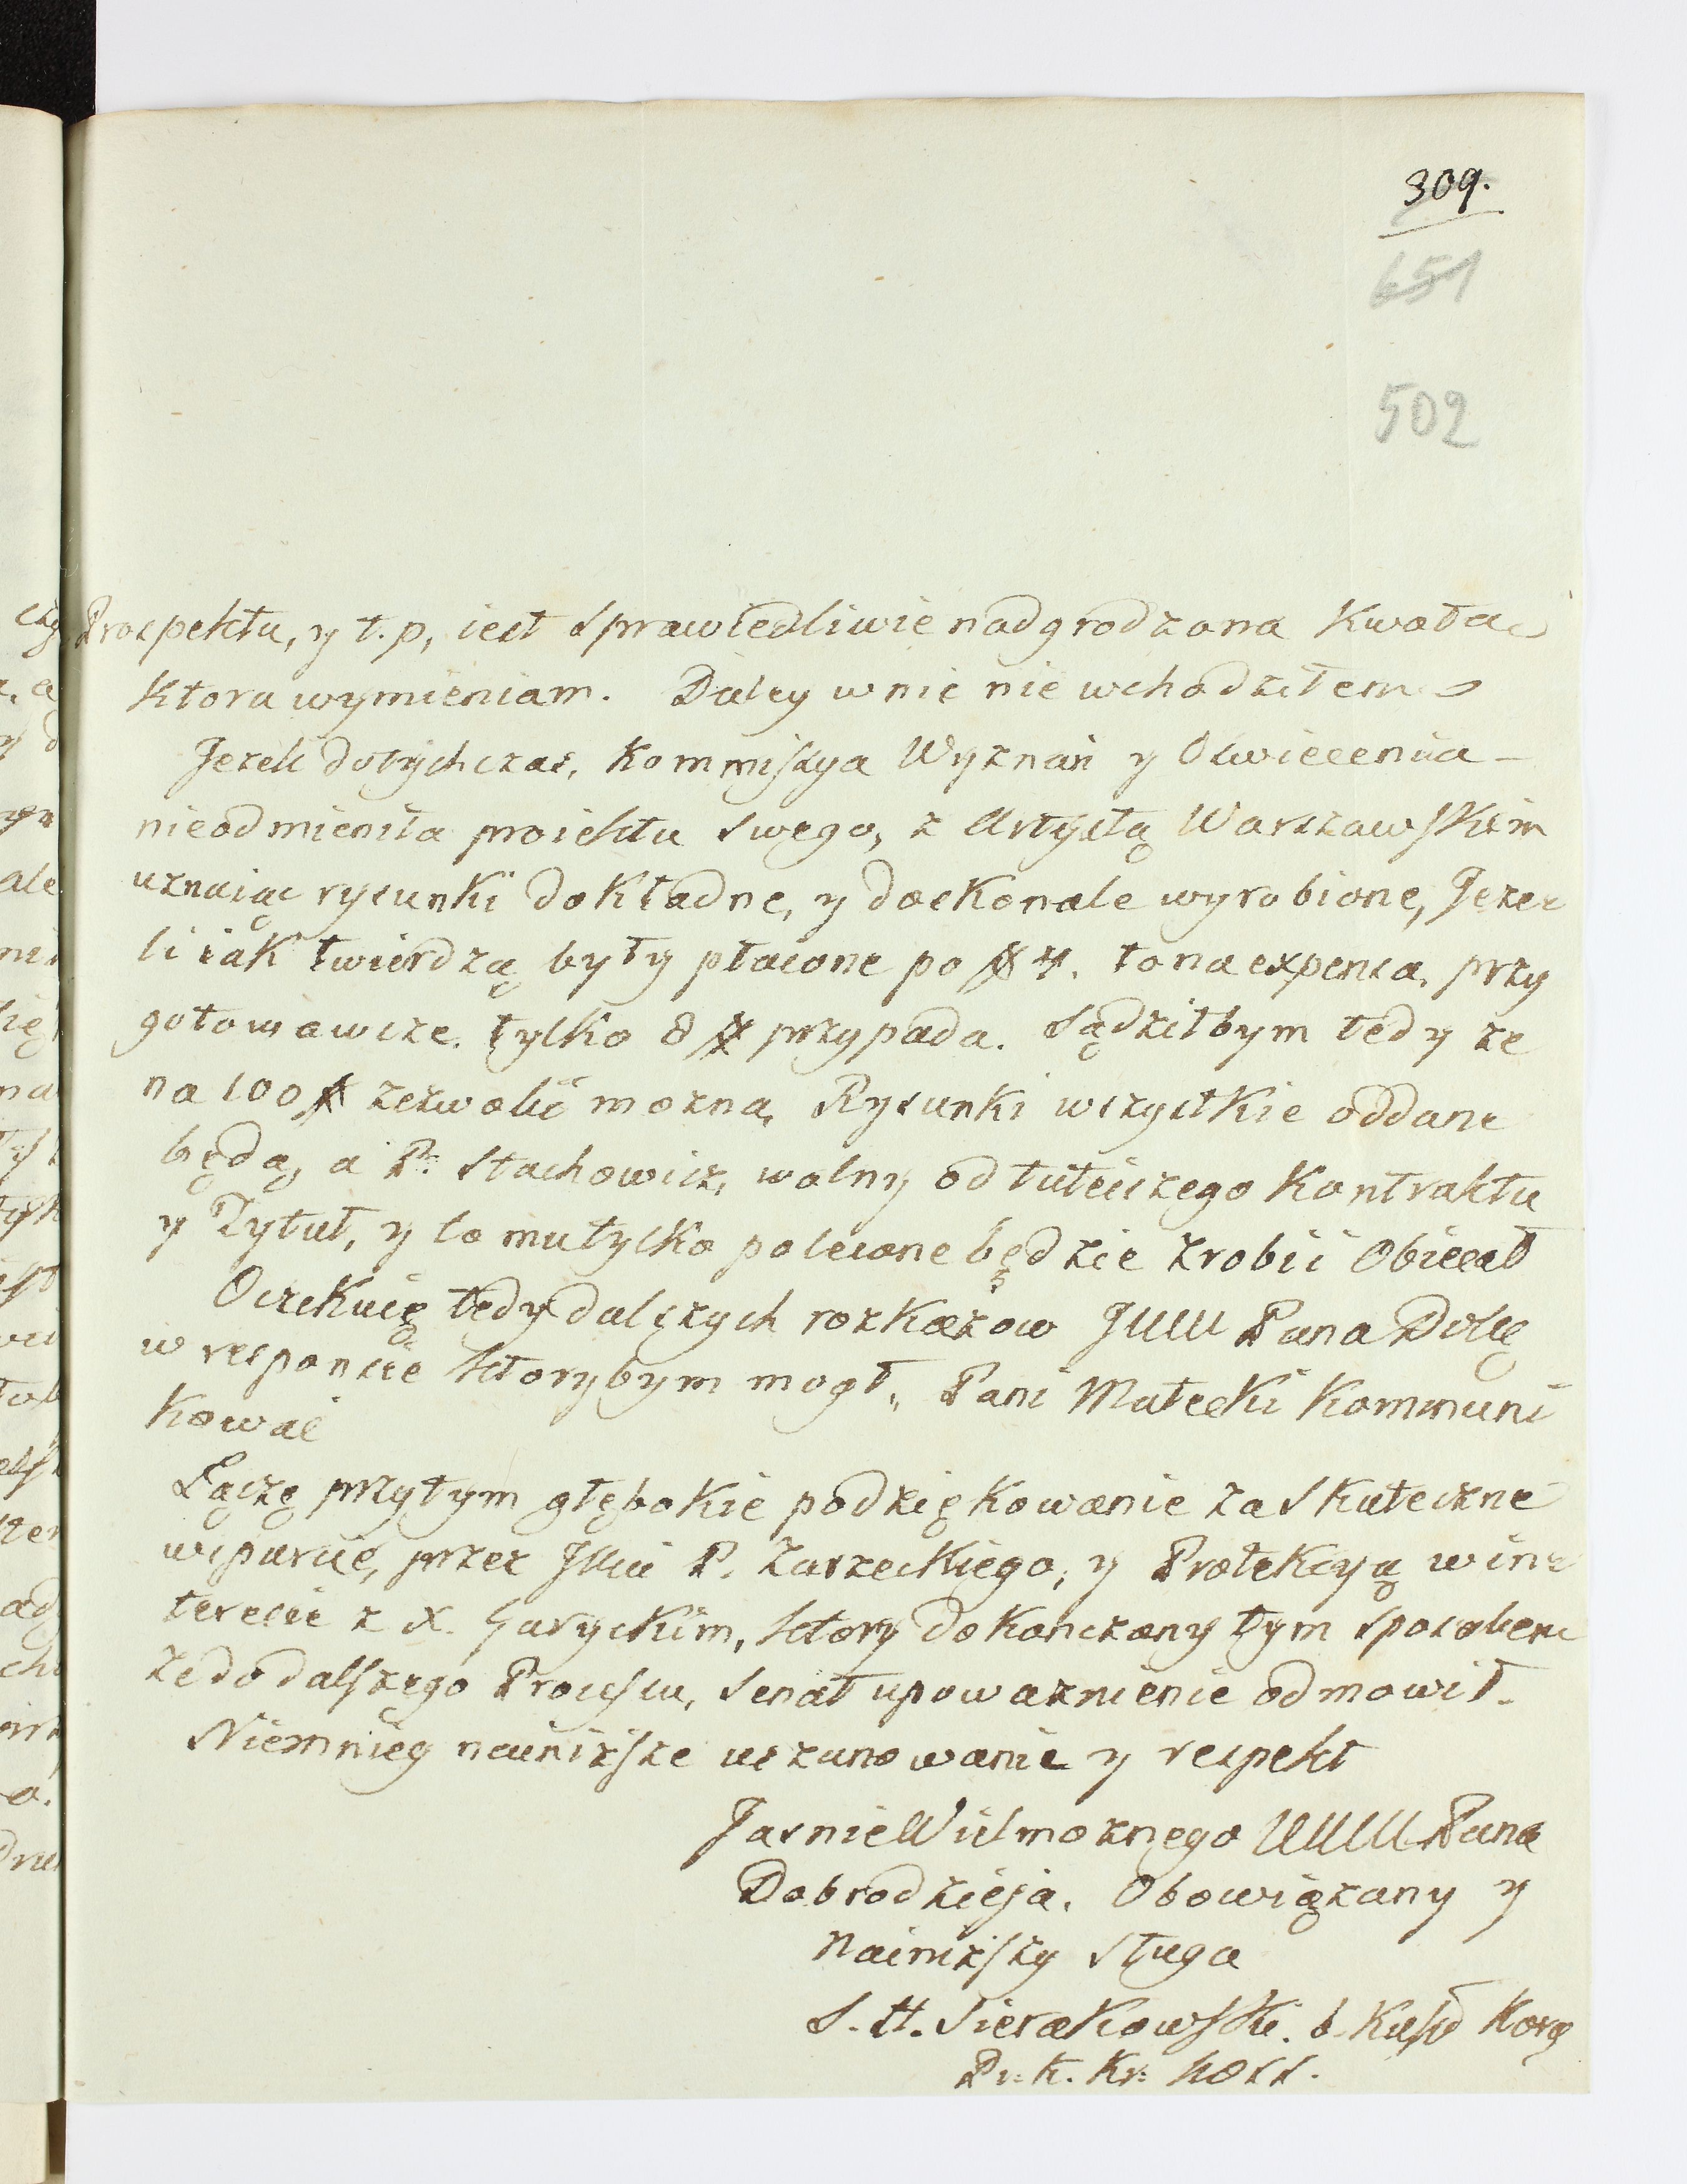 309.
651
502
Prospektu, y t. p, iest sprawiedliwie nadgrodzona Kwota
ktora wymieniam. Daley w nie nie wchodziłem
Jezeli dotychczas, Kommiszya Wyznań y Oświecenia
nieodmieniła proiektu swego, z Artystą Warszawskim
uznaiąc rysunki dokładne, y doskonale wyrobione, Jeze
li iak twierdzą były płacone po # 4. to na expensa, przy
gotowawcze. tylko 8 # przypada. Sądziłbym tedy ze
na 100 # zezwolić mozna, Rysunki wszystkie oddane
będą, a P. Stachowicz, wolny od tuteiszego Kontraktu
y Tytuł, y to mu tylko polecone będzie zrobić Obiecał
Oczekuię tedy dalszych rozkazow JWW Pana
w responsie ktorybym mogł, Pani Małecki Kommuni
kowac
Łączę przytym głębokie podziękowanie za skuteczne
wsparcie, przez P. Zarzeckiego, y Protekcyą w in
teresie z X. Garyckim, ktory dokonczony tym sposobem
ze do dalszego Processu, Senat upowaznienie odmowił.
Niemniey nainizsze uszanowanie y respekt
JasnieWielmoznego WWW Pana
Dobrodzieja. Obowiązany y
Nainizszy sługa
S. H. Sierakowski. b. Kust Korg
Pr. K. Kr.